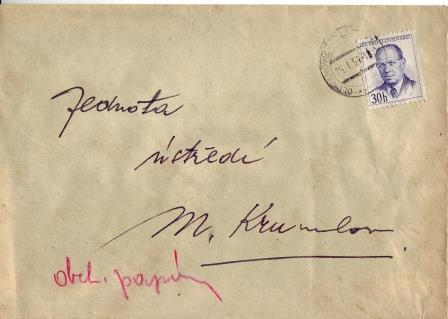 ČESKOSLOVENSKO
30h
Jednota
ústředí
M. Krumlov
obch. papíry